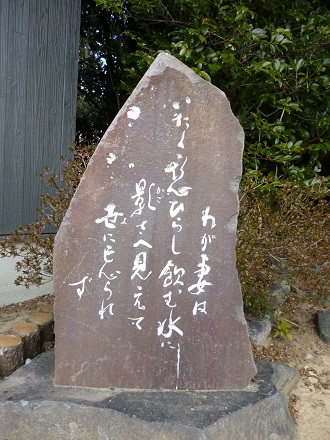 わが妻は
いたく恋ひらし飲む水に
影(かご)さへ見えて
世に忘られ
ず